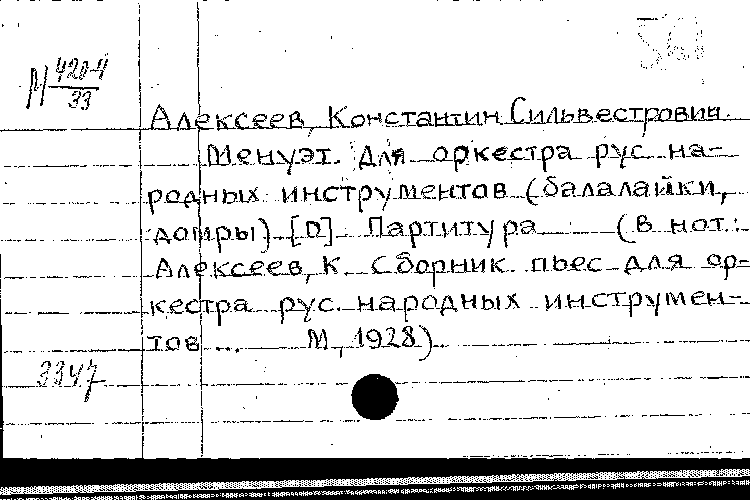 М 420-4
33
Алексеев, Константин Сильвестрович.
Менуэт. Для оркестра рус. на-
родных инструментов (балалайки,
домры) [D]. Партитура (В нот.:
Алексеев, К. Сборник пьес для ор-
кестра рус. народных инструмен-
тов ... М., 1928)
3347